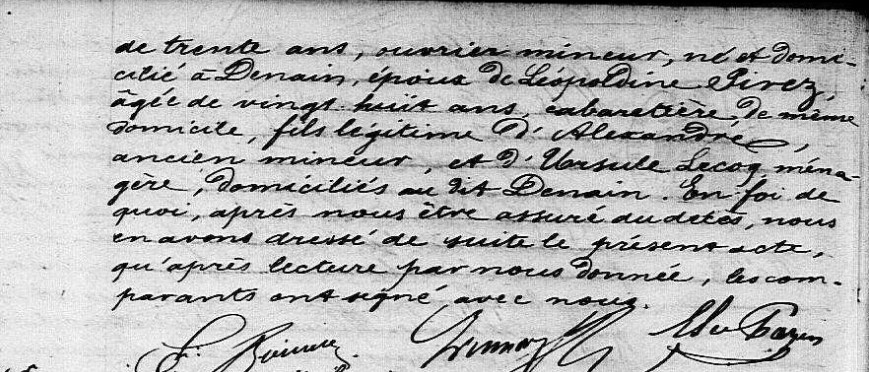 de trente ans, ouvrier mineur, né et domi-
cilié à Denain, époux de Léopoldine Pirez,
âgée de vingt huit ans, cabaretière, de même
domicile, fils légitime d'Alexandre,
ancien mineur, et d'Ursule Lecoq, ména-
gère, domiciliés au dit Denain. En foi de
quoi, après nous être assuré du décès, nous
en avons dressé de suite le présent acte,
qu'après lecture par nous donnée, les com-
parants ont signé avec nous.